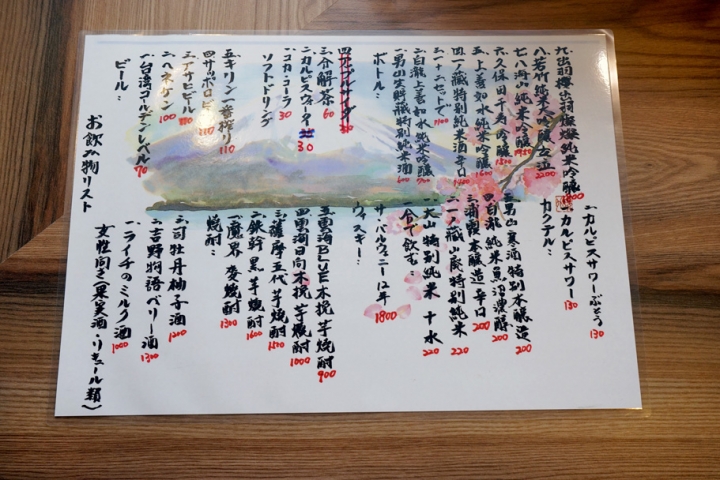 お飲み物リスト
ビール：
一.台湾ゴールデンレベル 70
二.ハネケン 100
三.アサヒビール
四.サッポロビール 110
五.キリン一番搾り 110
ソフトドリンク：
一.コカ・コーラ 30
二.カルピスウォーター 30
三.分解茶 60
ボトル：
特別純米酒 600
二.白瀧上善如水純米吟醸 700
セットで 1100
四.一ノ蔵特別純米酒辛口 1400
五.上善如水純米吟醸 1600
六.久保田千寿吟醸 1500
七.八海山純米吟醸 1950
八.若竹純米大吟醸 2200
九.出羽桜出羽燦燦純米吟醸
女性向き（果実酒・リキュール類）
一.ライチのミルク酒 1000
二.吉野物語ベリー酒 1300
三.司牡丹柚子酒 1200
焼酎：
一.魔界 麦焼酎 1300
二.鉄幹 黒 芋焼酎 1600
三.薩摩五代芋焼酎
四.雲海日向木挽芋焼酎 1000
五.雲海BLUE木挽芋焼酎 900
ウィスキー：
サ・バルヴェニー12年 1800
一合で飲む：
一.大山 特別純米 十水 220
二.一ノ蔵山廃特別純米 220
三.浦霞本醸造辛口 200
四.白瀧純米魚沼濃醇 200
五.男山寒酒特別本醸造 200
カクテル：
一.カルピスサワー 130
二.カルピスサワーぶどう 130